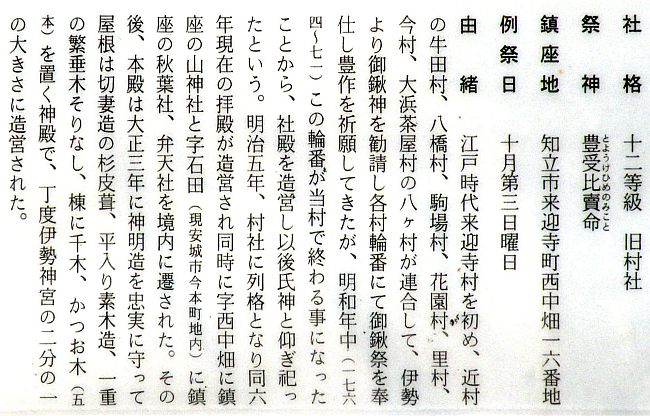 社格　十二等級　旧村社
祭神　豊受比賣命
とようけひめのみこと
鎮座地　知立市来迎寺町西中畑一六番地
例祭日　十月第三日曜日
由緒　江戸時代来迎寺村を初め、近村
の牛田村、八橋村、駒場村、花園村、里村、
今村、大浜茶屋村の八ヶ村が連合して、伊勢
より御鍬神を勧請し各村輪番にて御鍬祭を奉
仕し豊作を祈願してきたが、明和年中（一七六
四〜七一）この輪番が当村で終わる事になった
ことから、社殿を造営し以後氏神と仰ぎ祀っ
たという。明治五年、村社に列格となり同六
年現在の拝殿が造営され同時に字西中畑に鎮
座の山神社と字石田（現安城市今本町地内）に鎮
座の秋葉社、弁天社を境内に遷された。その
後、本殿は大正三年に神明造を忠実に守って
屋根は切妻造の杉皮葺、平入り素木造、一重
の繁垂木そりなし、棟に千木、かつお木（五
本）を置く神殿で、丁度伊勢神宮の二分の一
の大きさに造営された。